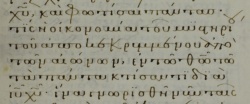 χῡ· καὶ φωτίσαι πάντας
τίς ἡ οἰκονομία τοῦ μυστηρί
ου τοῦ ἀποκεκρυμμένου ἀπὸ
τῶν αἰώνων ἐν τῶ θῶ τῶ
τὰ πάντα κτίσαντι διὰ
ῑῡ χῡ· ἵνα γνωρισθῆ νῦν ταῖς